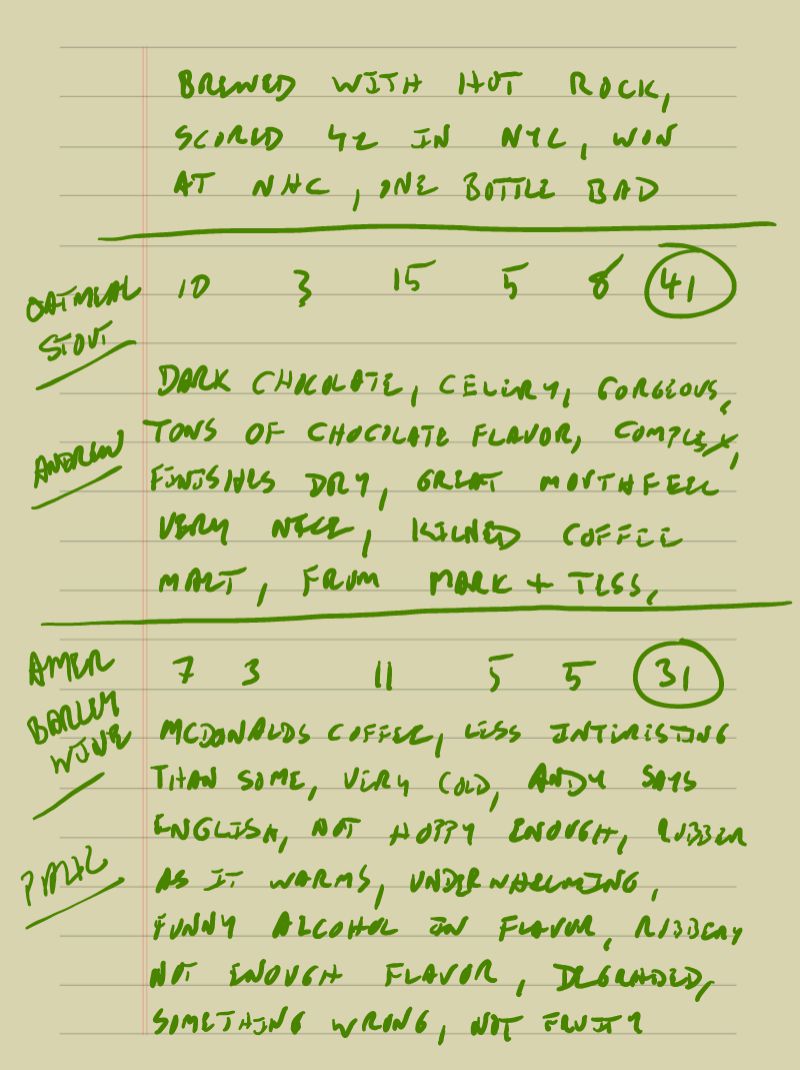 BREWED WITH HOT ROCK,
SCORED 42 IN NYC, WON
AT NHC, ONE BOTTLE BAD
OATMEAL STOUT
10 3 15 5 8 41
ANDREW
DARK CHOCOLATE, CELERY, GORGEOUS,
TONS OF CHOCOLATE FLAVOR, COMPLEX,
FINISHES DRY, GREAT MOUTHFEEL
VERY NICE, KILNED COFFEE
MALT, FROM MARK + TESS,
AMER BARLEY WINE
7 3 11 5 5 31
MCDONALDS COFFEE, LESS INTERESTING
THAN SOME, VERY COLD, ANDY SAYS
ENGLISH, NOT HOPPY ENOUGH, RUBBER
AS IT WARMS, UNDERWHELMING,
FUNNY ALCOHOL IN FLAVOR, RUBBERY
NOT ENOUGH FLAVOR, DEGRADED,
SOMETHING WRONG, NOT FRUITY